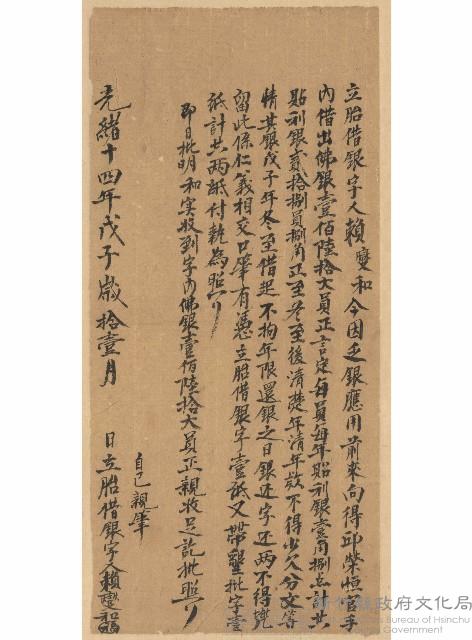 立胎借銀字人賴變和今因乏銀應用前來向得邱榮恒官手
內借出佛銀壹佰陸拾大員正言定每員每年貼利銀壹角捌占計共
貼利銀貳拾捌員捌角正至冬至後清楚年清年款不得少欠分文等
情其銀戊子年冬至借起不拘年限還銀之日銀还字还两不得
留此係仁義相交口筆有憑立胎借銀字壹紙又帶墾批字壹
紙計共两紙付執為炤
即日批明和实收到字內佛銀壹佰陸拾大員正親收足訖批照
自己親筆
光緒十四年戊子歲拾壹月 日立胎借銀字人賴變和
新竹縣政府文化局
Bureau of Hsinchu
Government